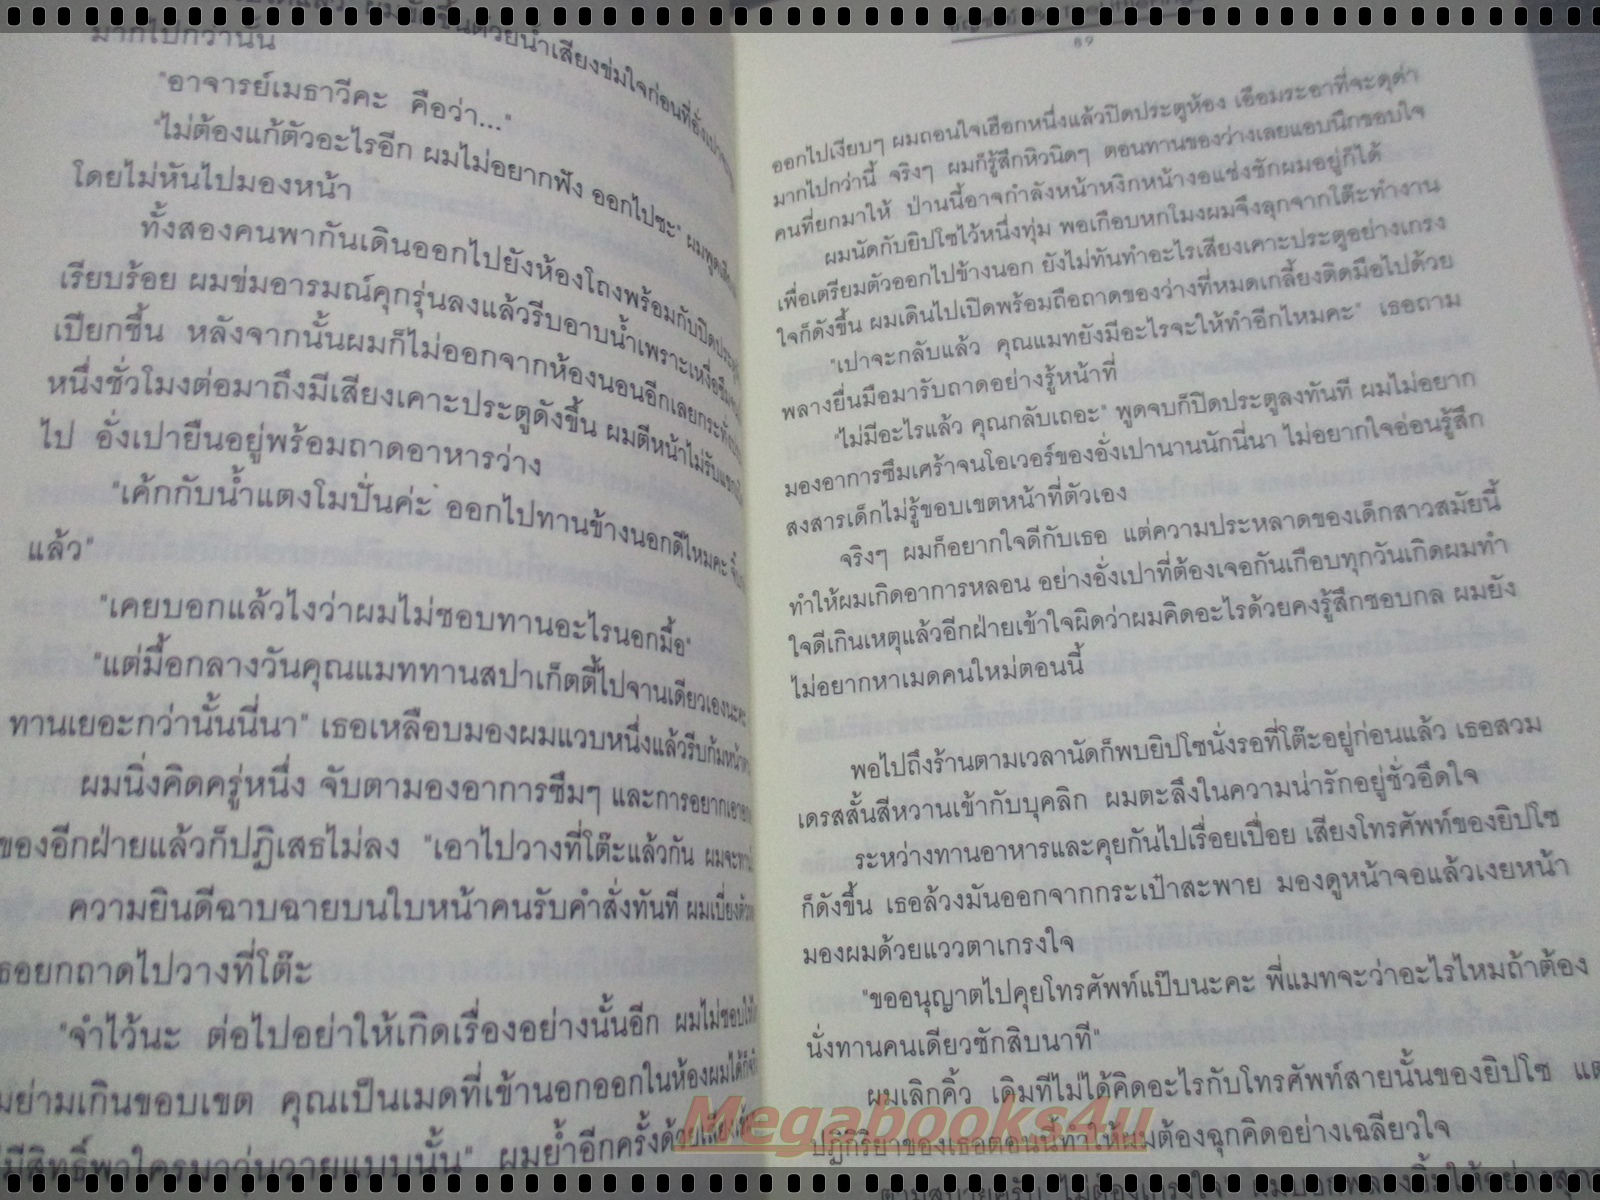 มากไปกว่านั้น
"อาจารย์เมธาวีคะ คือว่า..."
"ไม่ต้องแก้ตัวอะไรอีก ผมไม่อยากฟัง ออกไปซะ" ผมพูดเสียง
โดยไม่หันไปมองหน้า
ทั้งสองคนพากันเดินออกไปยังห้องโถงพร้อมกับปิดประตู
เรียบร้อย ผมข่มอารมณ์คุกรุ่นลงแล้วรีบอาบน้ำเพราะเหงื่อซึม
เปียกชื้น หลังจากนั้นผมก็ไม่ออกจากห้องนอนอีกเลยกระทั่ง
หนึ่งชั่วโมงต่อมาถึงมีเสียงเคาะประตูดังขึ้น ผมตีหน้าไม่รับแขก
ไป อั่งเปายืนอยู่พร้อมถาดอาหารว่าง
"เค้กกับน้ำแตงโมปั่นค่ะ ออกไปทานข้างนอกดีไหมคะ
แล้ว"
"เคยบอกแล้วไงว่าผมไม่ชอบทานอะไรนอกมื้อ"
"แต่มื้อกลางวันคุณแมททานสปาเก็ตตี้ไปจานเดียวเองนะคะ
ทานเยอะกว่านั้นนี่นา" เธอเหลือบมองผมแวบหนึ่งแล้วรีบก้มหน้า
ผมนิ่งคิดครู่หนึ่ง จับตามองอาการซึมๆ และการอยากเอา
ของอีกฝ่ายแล้วก็ปฏิเสธไม่ลง "เอาไปวางที่โต๊ะแล้วกัน ผมจะ
ความยินดีฉาบฉายบนใบหน้าคนรับคำสั่งทันที ผมเบี่ยงตัว
ธอยกถาดไปวางที่โต๊ะ
"จำไว้นะ ต่อไปอย่าให้เกิดเรื่องอย่างนั้นอีก ผมไม่ชอบให้
มย่ามเกินขอบเขต คุณเป็นเมดที่เข้านอกออกในห้องผมได้ก็
มีสิทธิ์พาใครมาวุ่นวายแบบนั้น" ผมย้ำอีกครั้งด้วยเสียง
89
ออกไปเงียบๆ ผมถอนใจเฮือกหนึ่งแล้วปิดประตูห้อง เอือมระอาที่จะดุด่า
มากไปกว่านี้ จริงๆ ผมก็รู้สึกหิวนิดๆ ตอนทานของว่างเลยแอบนึกขอบใจ
คนที่ยกมาให้ ป่านนี้อาจกำลังหน้าหงิกหน้างอแช่งชักผมอยู่ก็ได้
ผมนัดกับยิปโซไว้หนึ่งทุ่ม พอเกือบหกโมงผมจึงลุกจากโต๊ะทำงาน
เพื่อเตรียมตัวออกไปข้างนอก ยังไม่ทันทำอะไรเสียงเคาะประตูอย่างเกรง
ใจก็ดังขึ้น ผมเดินไปเปิดพร้อมถือถาดของว่างที่หมดเกลี้ยงติดมือไปด้วย
"เปาจะกลับแล้ว คุณแมทยังมีอะไรจะให้ทำอีกไหมคะ" เธอถาม
พลางยื่นมือมารับถาดอย่างรู้หน้าที่
"ไม่มีอะไรแล้ว คุณกลับเถอะ" พูดจบก็ปิดประตูลงทันที ผมไม่อยาก
มองอาการซึมเศร้าจนโอเวอร์ของอั่งเปานานนักนี่นา ไม่อยากใจอ่อนรู้สึก
สงสารเด็กไม่รู้ขอบเขตหน้าที่ตัวเอง
จริงๆ ผมก็อยากใจดีกับเธอ แต่ความประหลาดของเด็กสาวสมัยนี้
ทำให้ผมเกิดอาการหลอน อย่างอั่งเปาที่ต้องเจอกันเกือบทุกวันเกิดผมทำ
ใจดีเกินเหตุแล้วอีกฝ่ายเข้าใจผิดว่าผมคิดอะไรด้วยคงรู้สึกชอบกล ผมยัง
ไม่อยากหาเมดคนใหม่ตอนนี้
พอไปถึงร้านตามเวลานัดก็พบยิปโซนั่งรอที่โต๊ะอยู่ก่อนแล้ว เธอสวม
เดรสสั้นสีหวานเข้ากับบุคลิก ผมตะลึงในความน่ารักอยู่ชั่วอึดใจ
ระหว่างทานอาหารและคุยกันไปเรื่อยเปื่อย เสียงโทรศัพท์ของยิปโซ
ก็ดังขึ้น เธอล้วงมันออกจากกระเป๋าสะพาย มองดูหน้าจอแล้วเงยหน้า
มองผมด้วยแววตาเกรงใจ
"ขออนุญาตไปคุยโทรศัพท์แป๊บนะคะ พี่แมทจะว่าอะไรไหมถ้าต้อง
นั่งทานคนเดียวซักสิบนาที"
ผมเลิกคิ้ว เดิมทีไม่ได้คิดอะไรกับโทรศัพท์สายนั้นของยิปโซ แต่
ปฏิกิริยาของเธอตอนนี้ทำให้ผมต้องฉุกคิดอย่างเฉลียวใจ
ตามสบายครับ ไม่ต้องเกรงใจ"
Megabooks4u